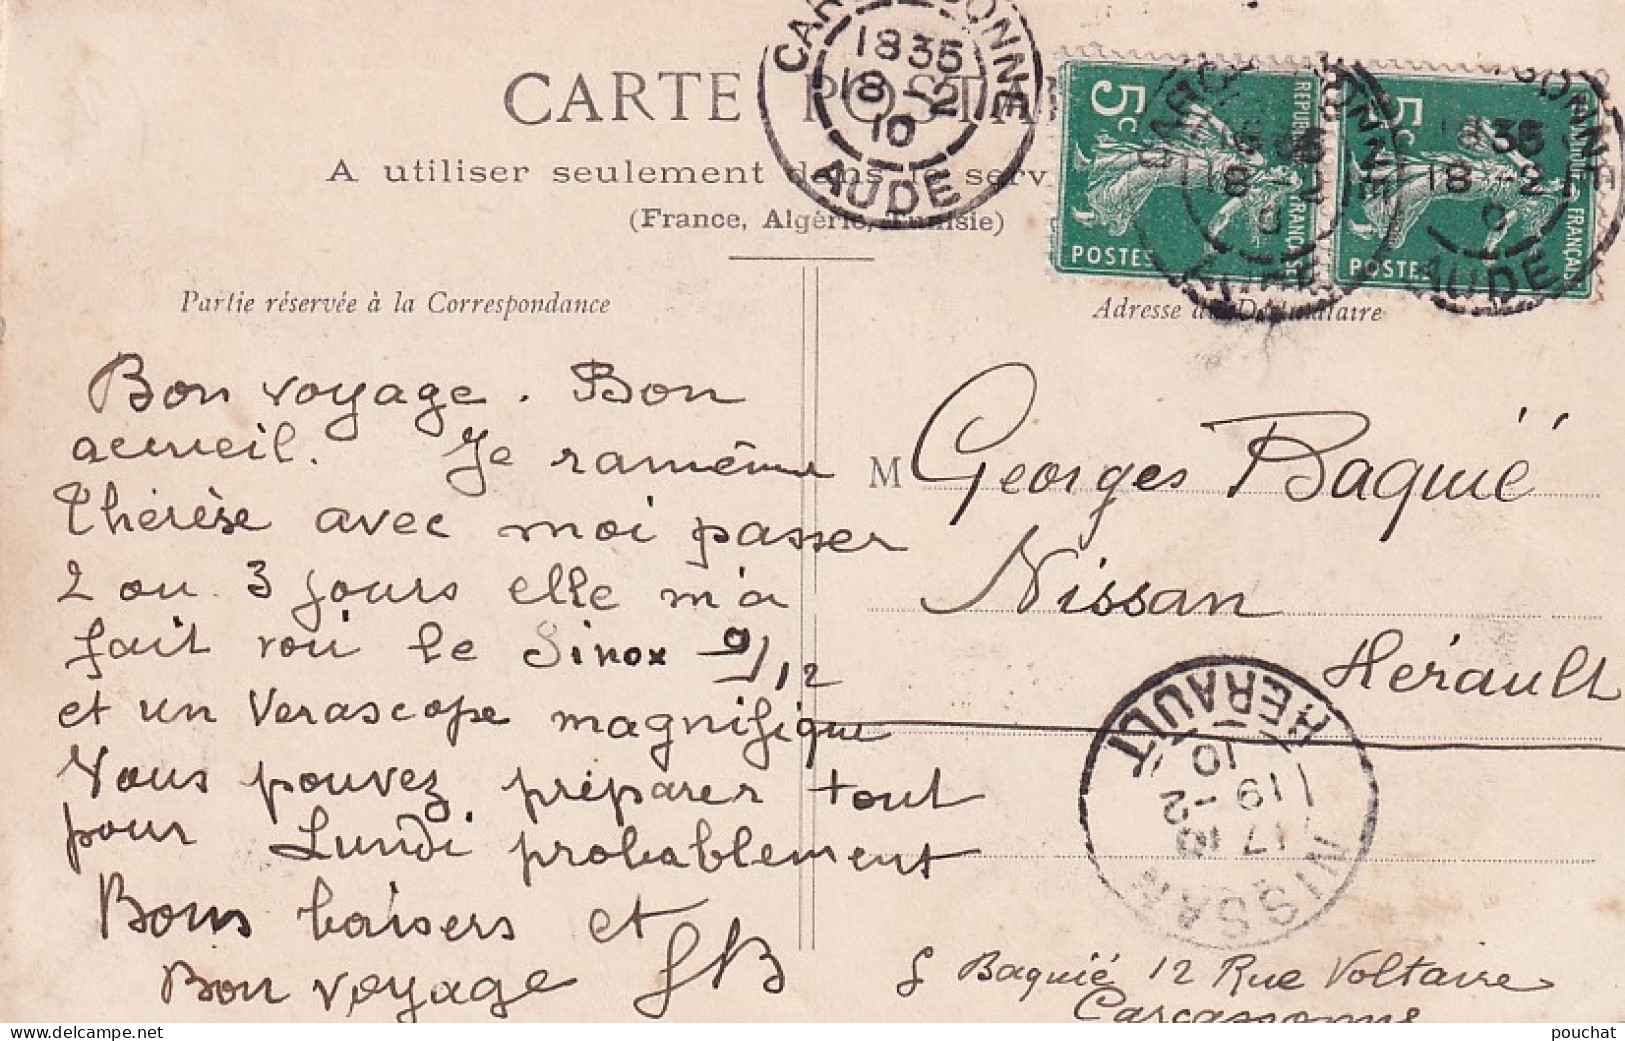 CARTE POSTA
A utiliser seulement dans le serv
(France, Algérie, Tunisie)
CAR ONNE
1835
18 -2
10
AUDE
5c
REPUBLIQUE FRANÇAISE
POSTES
5c
FRANÇAIS
POSTES
1835
18 -2
AUDE
Partie réservée à la Correspondance
Adresse du Destinataire
Bon voyage. Bon
acueil. Je ramême
Thérèse avec moi passer
2 ou 3 jours elle m'a
fait voir le Sinox 9/12
et un Verascope magnifique
Vous pouvez préparer tout
pour Lundi probablement
Bons baisers et
Bon voyage JB
M Georges Baquié
Nissan
Hérault
NISSAN
17 10
19 -2
10
HERAULT
J Baquié 12 Rue Voltaire
Carcassonne
www.delcampe.net
pouchat